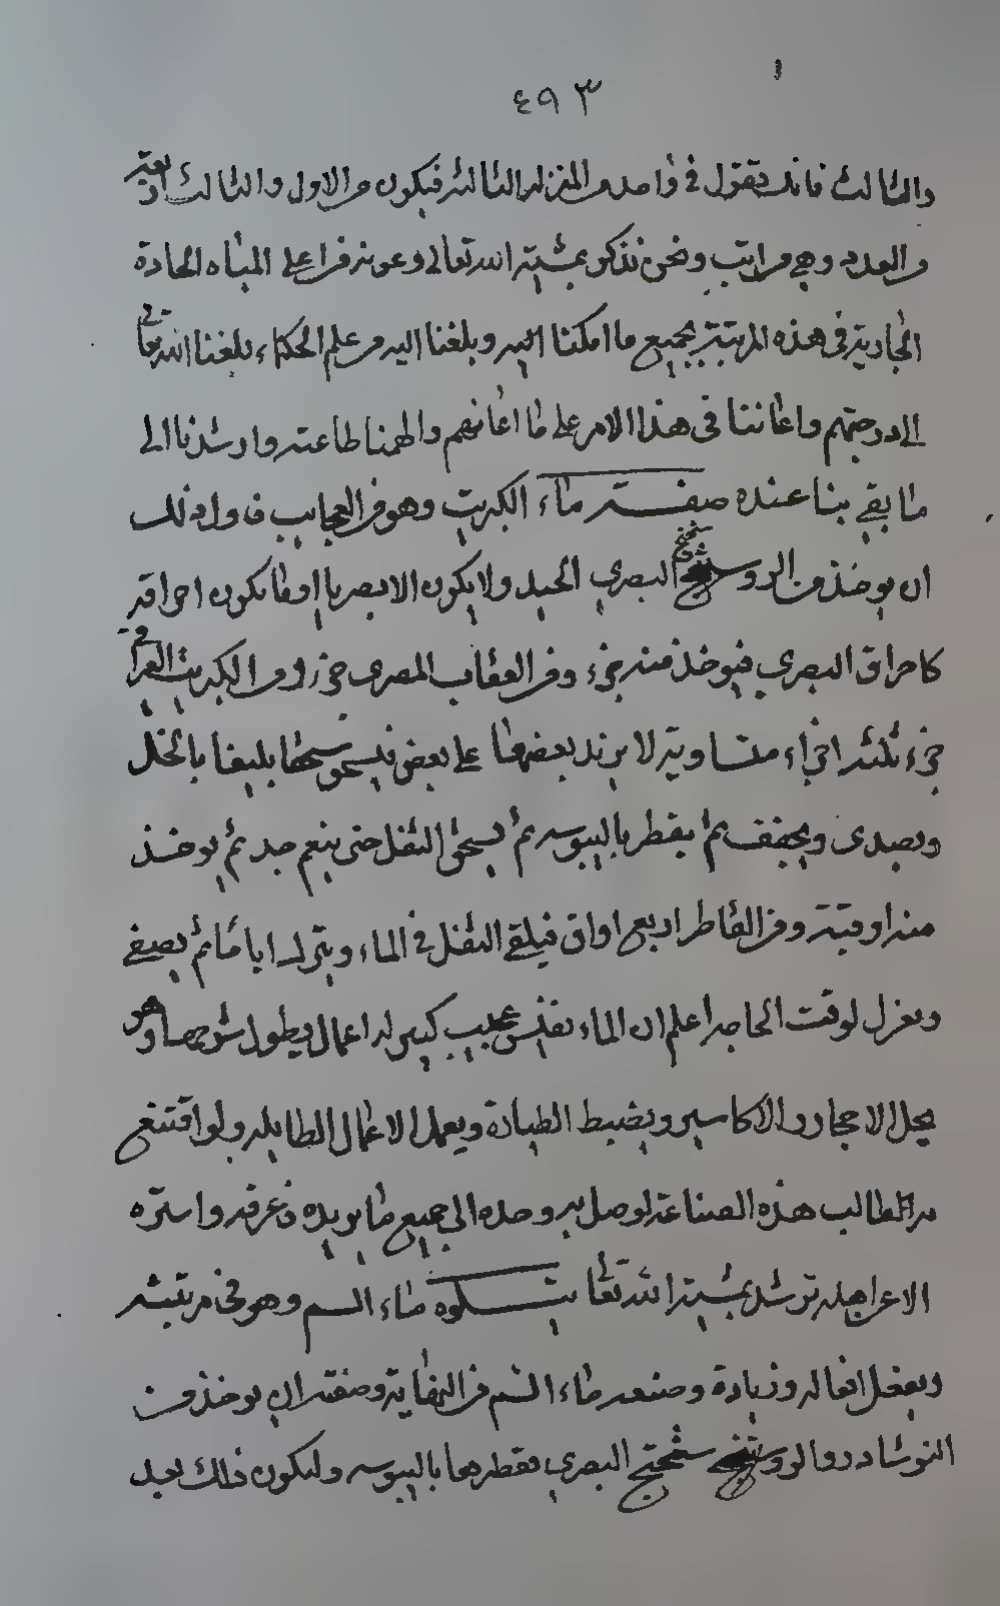 ٤٩٣
والثالث فانك تقول في واحد من المنزلة الثالثة فيكون من الاول والثالث اربعة
من العدد وهي مراتب ونحن نذكر بمشيئة الله تعالى وعونه فرا على المياه الحادة
الجارية في هذه المرتبة بجميع ما امكننا اليه وبلغنا اليه من علم الحكماء بلغنا الله تعالى
الى درجتهم واعاننا في هذا الامر على ما اعانهم والهمنا طاعته وارشدنا الى
ما بقي بنا عنده صفته ماء الكبريت وهو من العجايب فاول ذلك
ان يوخذ من الروسختج البصري الجيد ولا يكون الا بصريا او ما يكون احراقه
كاحراق البصري فيوخذ منه جزء ومن العقاب المصري جزء ومن الكبريت العراقي
جزء ثلثة اجزاء متساوية لا يزيد بعضها على بعض فيسحق سحقا بليغا بالخل
ويصدى ويجفف ثم يقطر باليبوسه ثم يسحق الثفل حتى ينعم جدا ثم يوخذ
منه اوقية ومن القاطر اربع اواق فيلقي الثفل في الماء ويترك اياما ثم يصفى
ويعزل لوقت الحاجه اعلم ان الماء نفيس عجيب كبير له اعمال يطول شرحها وهو
يحل الاحجار والاكاسير ويضبط الطيارة ويعمل الاعمال الطايله ولو اقتنع
به الطالب هذه الصناعة لوصل به وحده الى جميع ما يريده فاعرفه واستره
الا عن اهله ترشد بمشيئة الله تعالى يتلوه ماء السم وهو في مرتبته
ويفعل افعاله وزيادة وصنعه ماء السم من النهاية وصفته ان يوخذ من
النوشادر والروسختج سختج البصري فقطرهما باليبوسه وليكون ذلك بعد